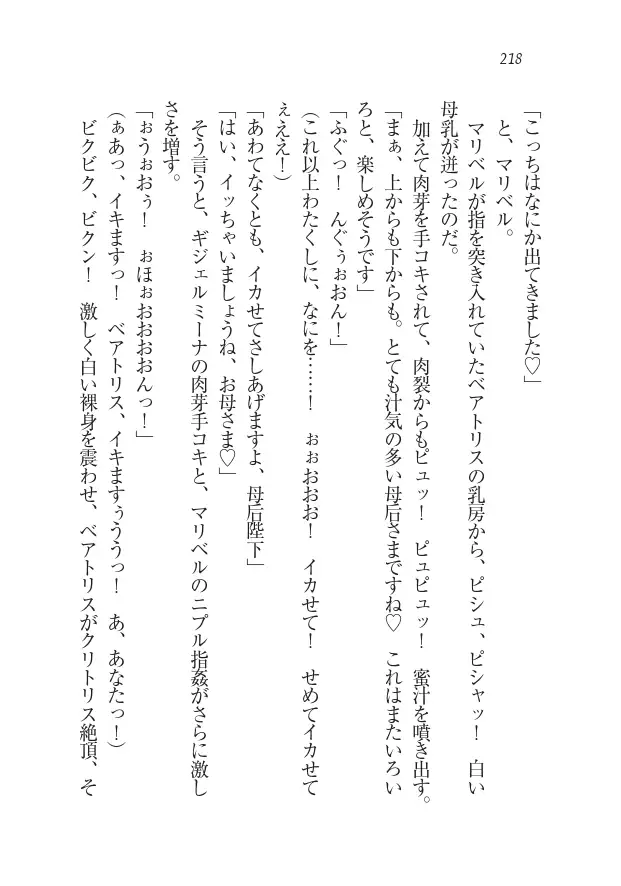 218
「こっちはなにか出てきました♡」
と、マリベル。
マリベルが指を突き入れていたベアトリスの乳房から、ピシュ、ピシャッ！　白い
母乳が迸ったのだ。
加えて肉芽を手コキされて、肉裂からもピュッ！　ピュピュッ！　蜜汁を噴き出す。
「まぁ、上からも下からも。とても汁気の多い母后さまですね♡　これはまたいろい
ろと、楽しめそうです」
「ふぐっ！　んぐぅぉおん！」
（これ以上わたくしに、なにを……！　ぉぉおおお！　イカせて！　せめてイカせて
ぇええ！）
「あわてなくとも、イカせてさしあげますよ、母后陛下」
「はい、イッちゃいましょうね、お母さま♡」
そう言うと、ギジェルミーナの肉芽手コキと、マリベルのニプル指姦がさらに激し
さを増す。
「ぉうぉおぅ！　ぉほぉおおおおんっ！」
（ぁあっ、イキますっ！　ベアトリス、イキますぅううっ！　あ、あなたっ！）
ビクビク、ビクン！　激しく白い裸身を震わせ、ベアトリスがクリトリス絶頂、そ